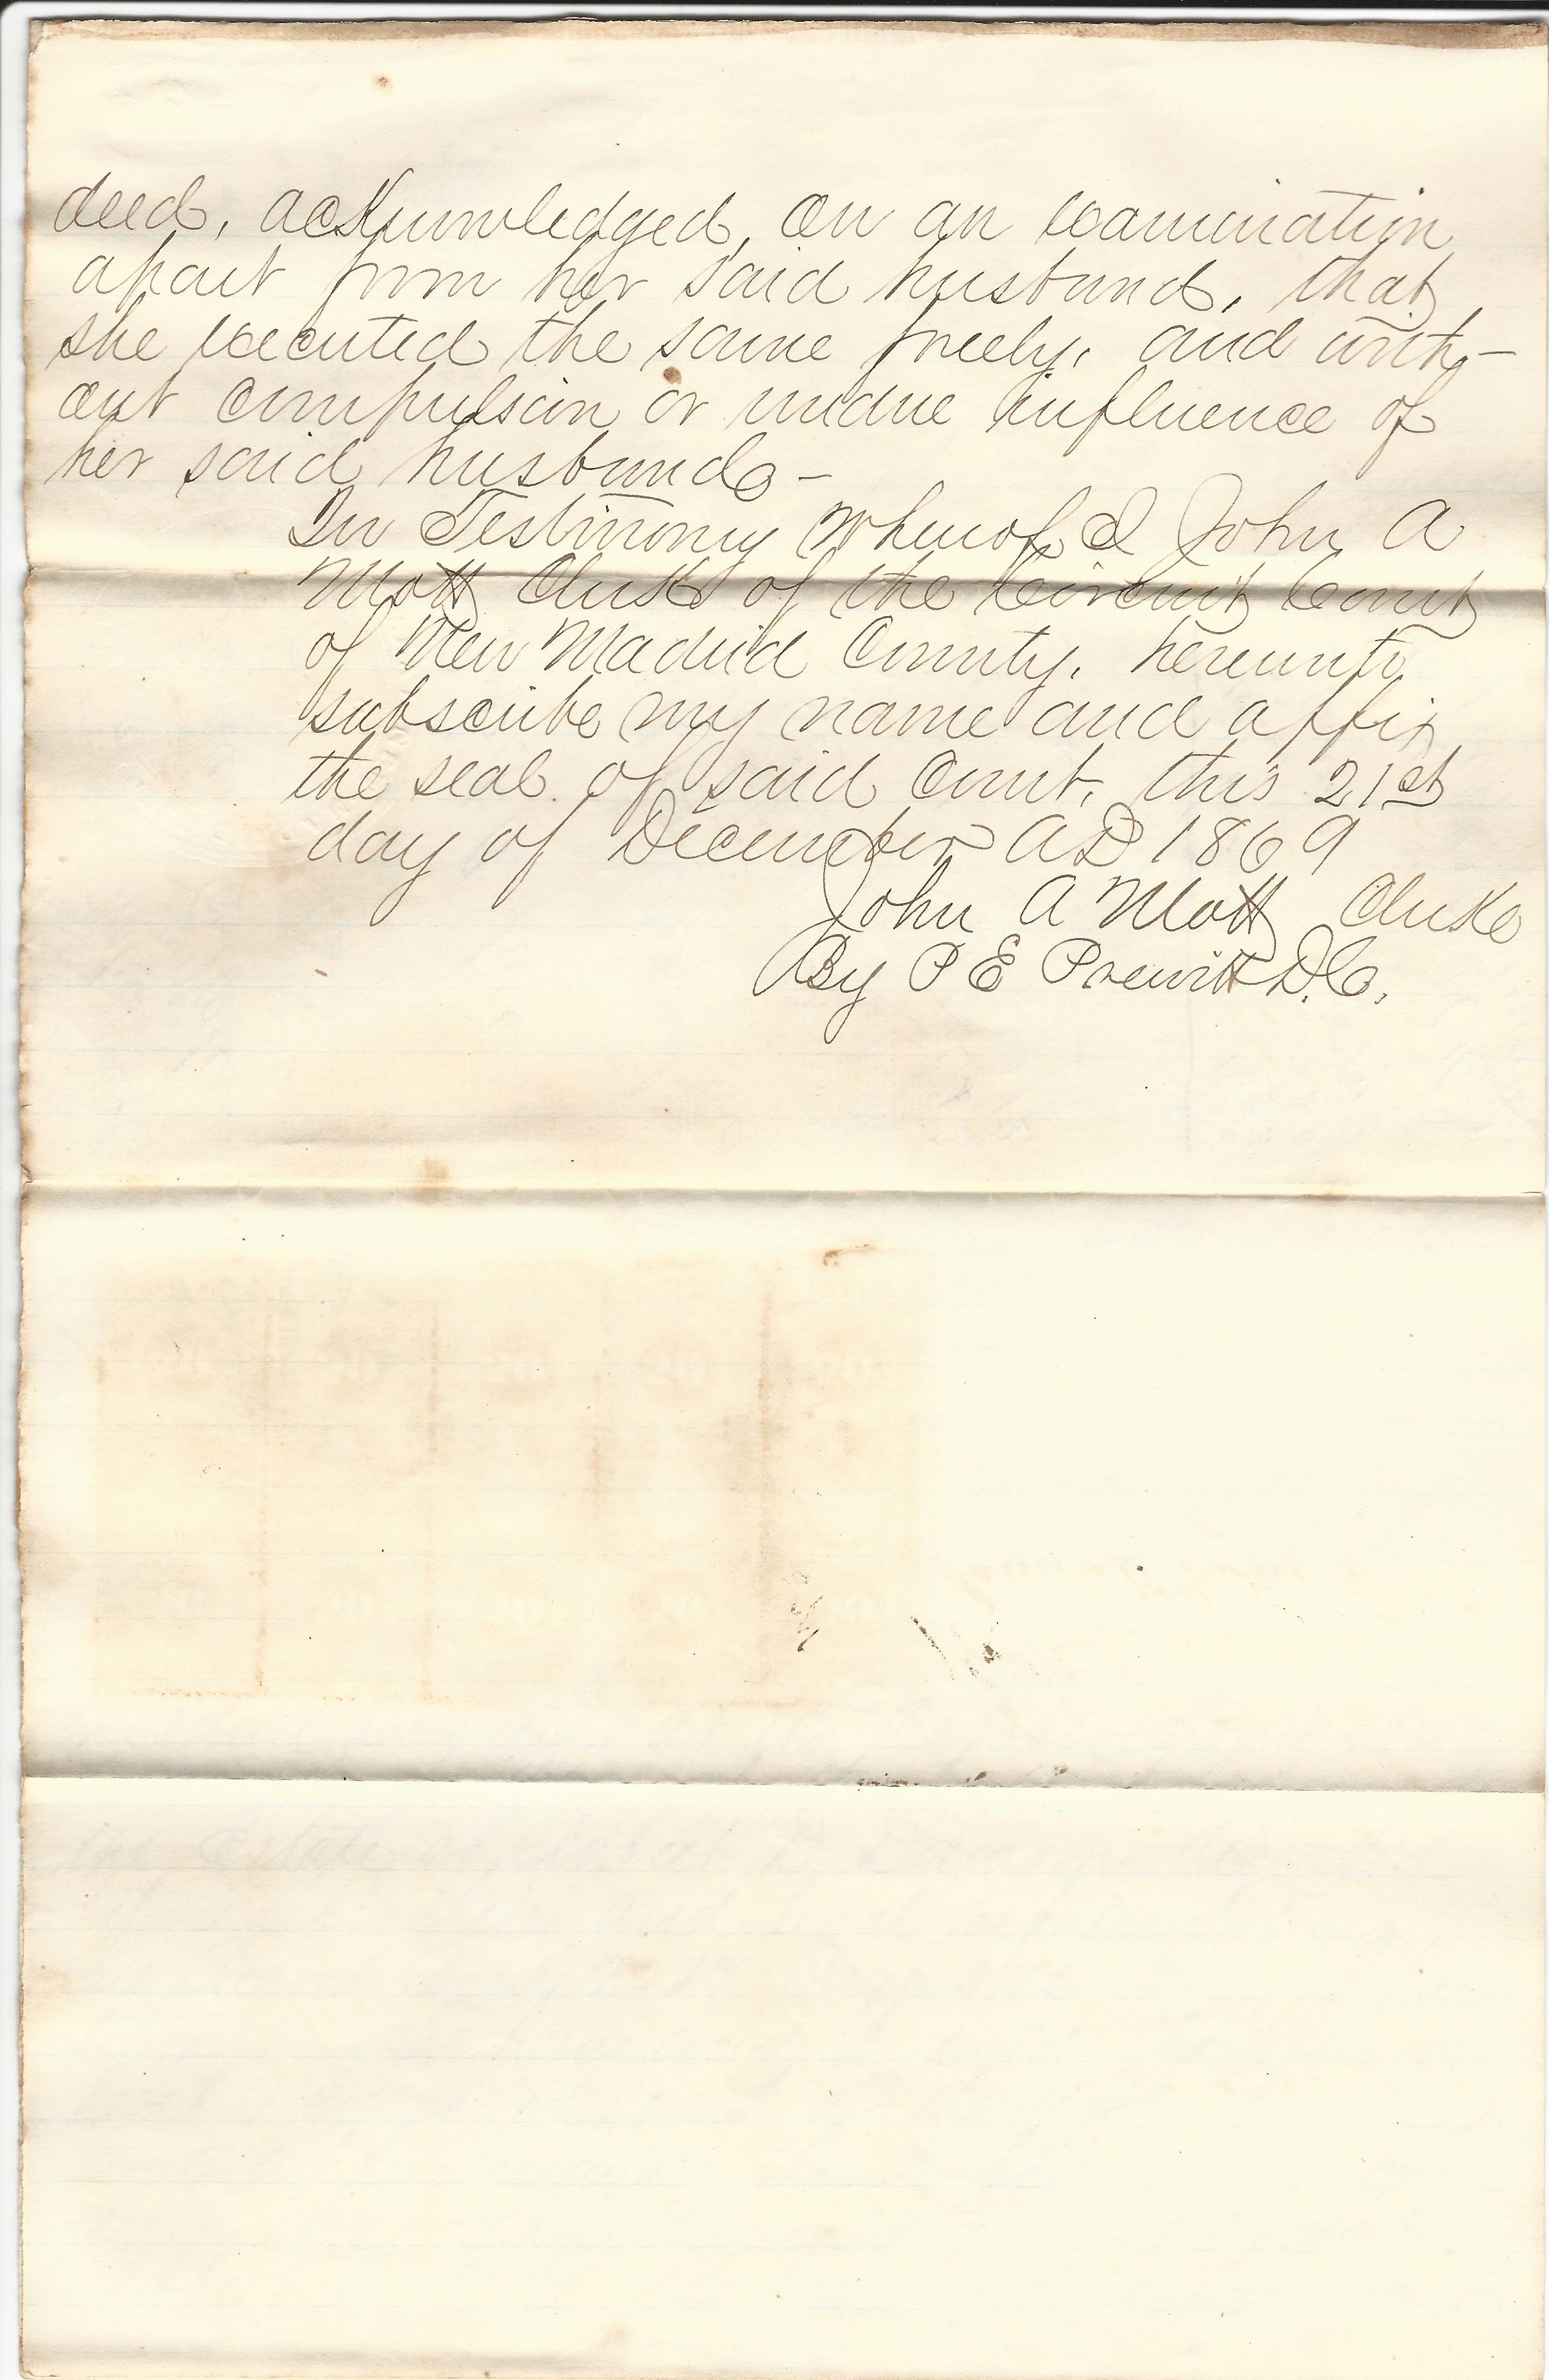 deed, acknowledged, on an examination
apart from her said husband, that
she executed the same freely, and with-
out compulsion or undue influence of
her said husband -
In Testimony Whereof I John A
Mott Clerk of the Circuit Court
of New Madrid County, hereunto
subscribe my name and affix
the seal of said Court, this 21st
day of December AD 1869
John A Mott Clerk
By P E Prewitt D.C.